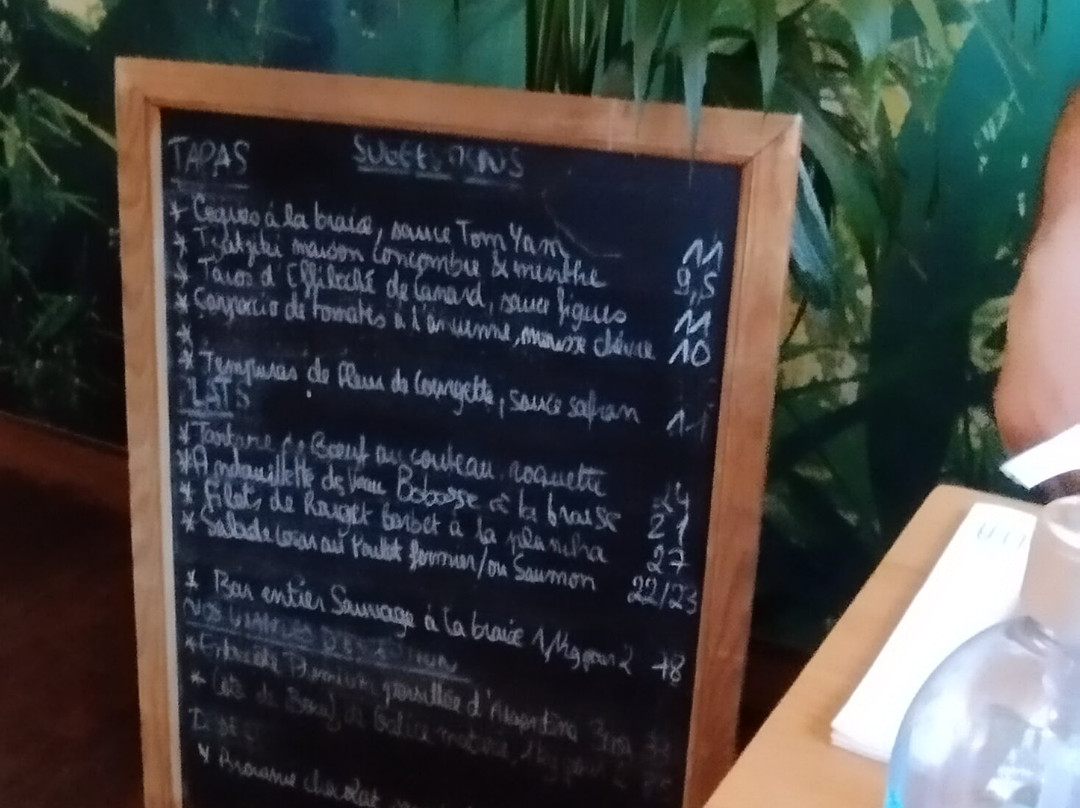 TAPAS SUGGESTIONS
* Coques à la braise, sauce Tom Yam 11
* Tzatziki maison concombre & menthe 9,5
* Tacos d'Effiloché de Canard, sauce figues 11
* Carpaccio de tomates à l'ancienne, mousse chèvre 10
*
* Tempuras de fleur de Courgette, sauce safran
PLATS
* Tartare de Bœuf au couteau roquette 24
* Andouillette de Veau Bobosse à la braise 21
* Filets de Rouget barbet à la plancha 27
* Salade César au Poulet fermier/ou Saumon 22/23
* Bar entier Sauvage à la braise 1/kg pour 2 78
NOS VIANDES D'EXCEPTION
* Entrecôte Premium grillée d'Argentine
* Côte de Bœuf de Galice maturée, 1kg pour 2
* Brownie chocolat